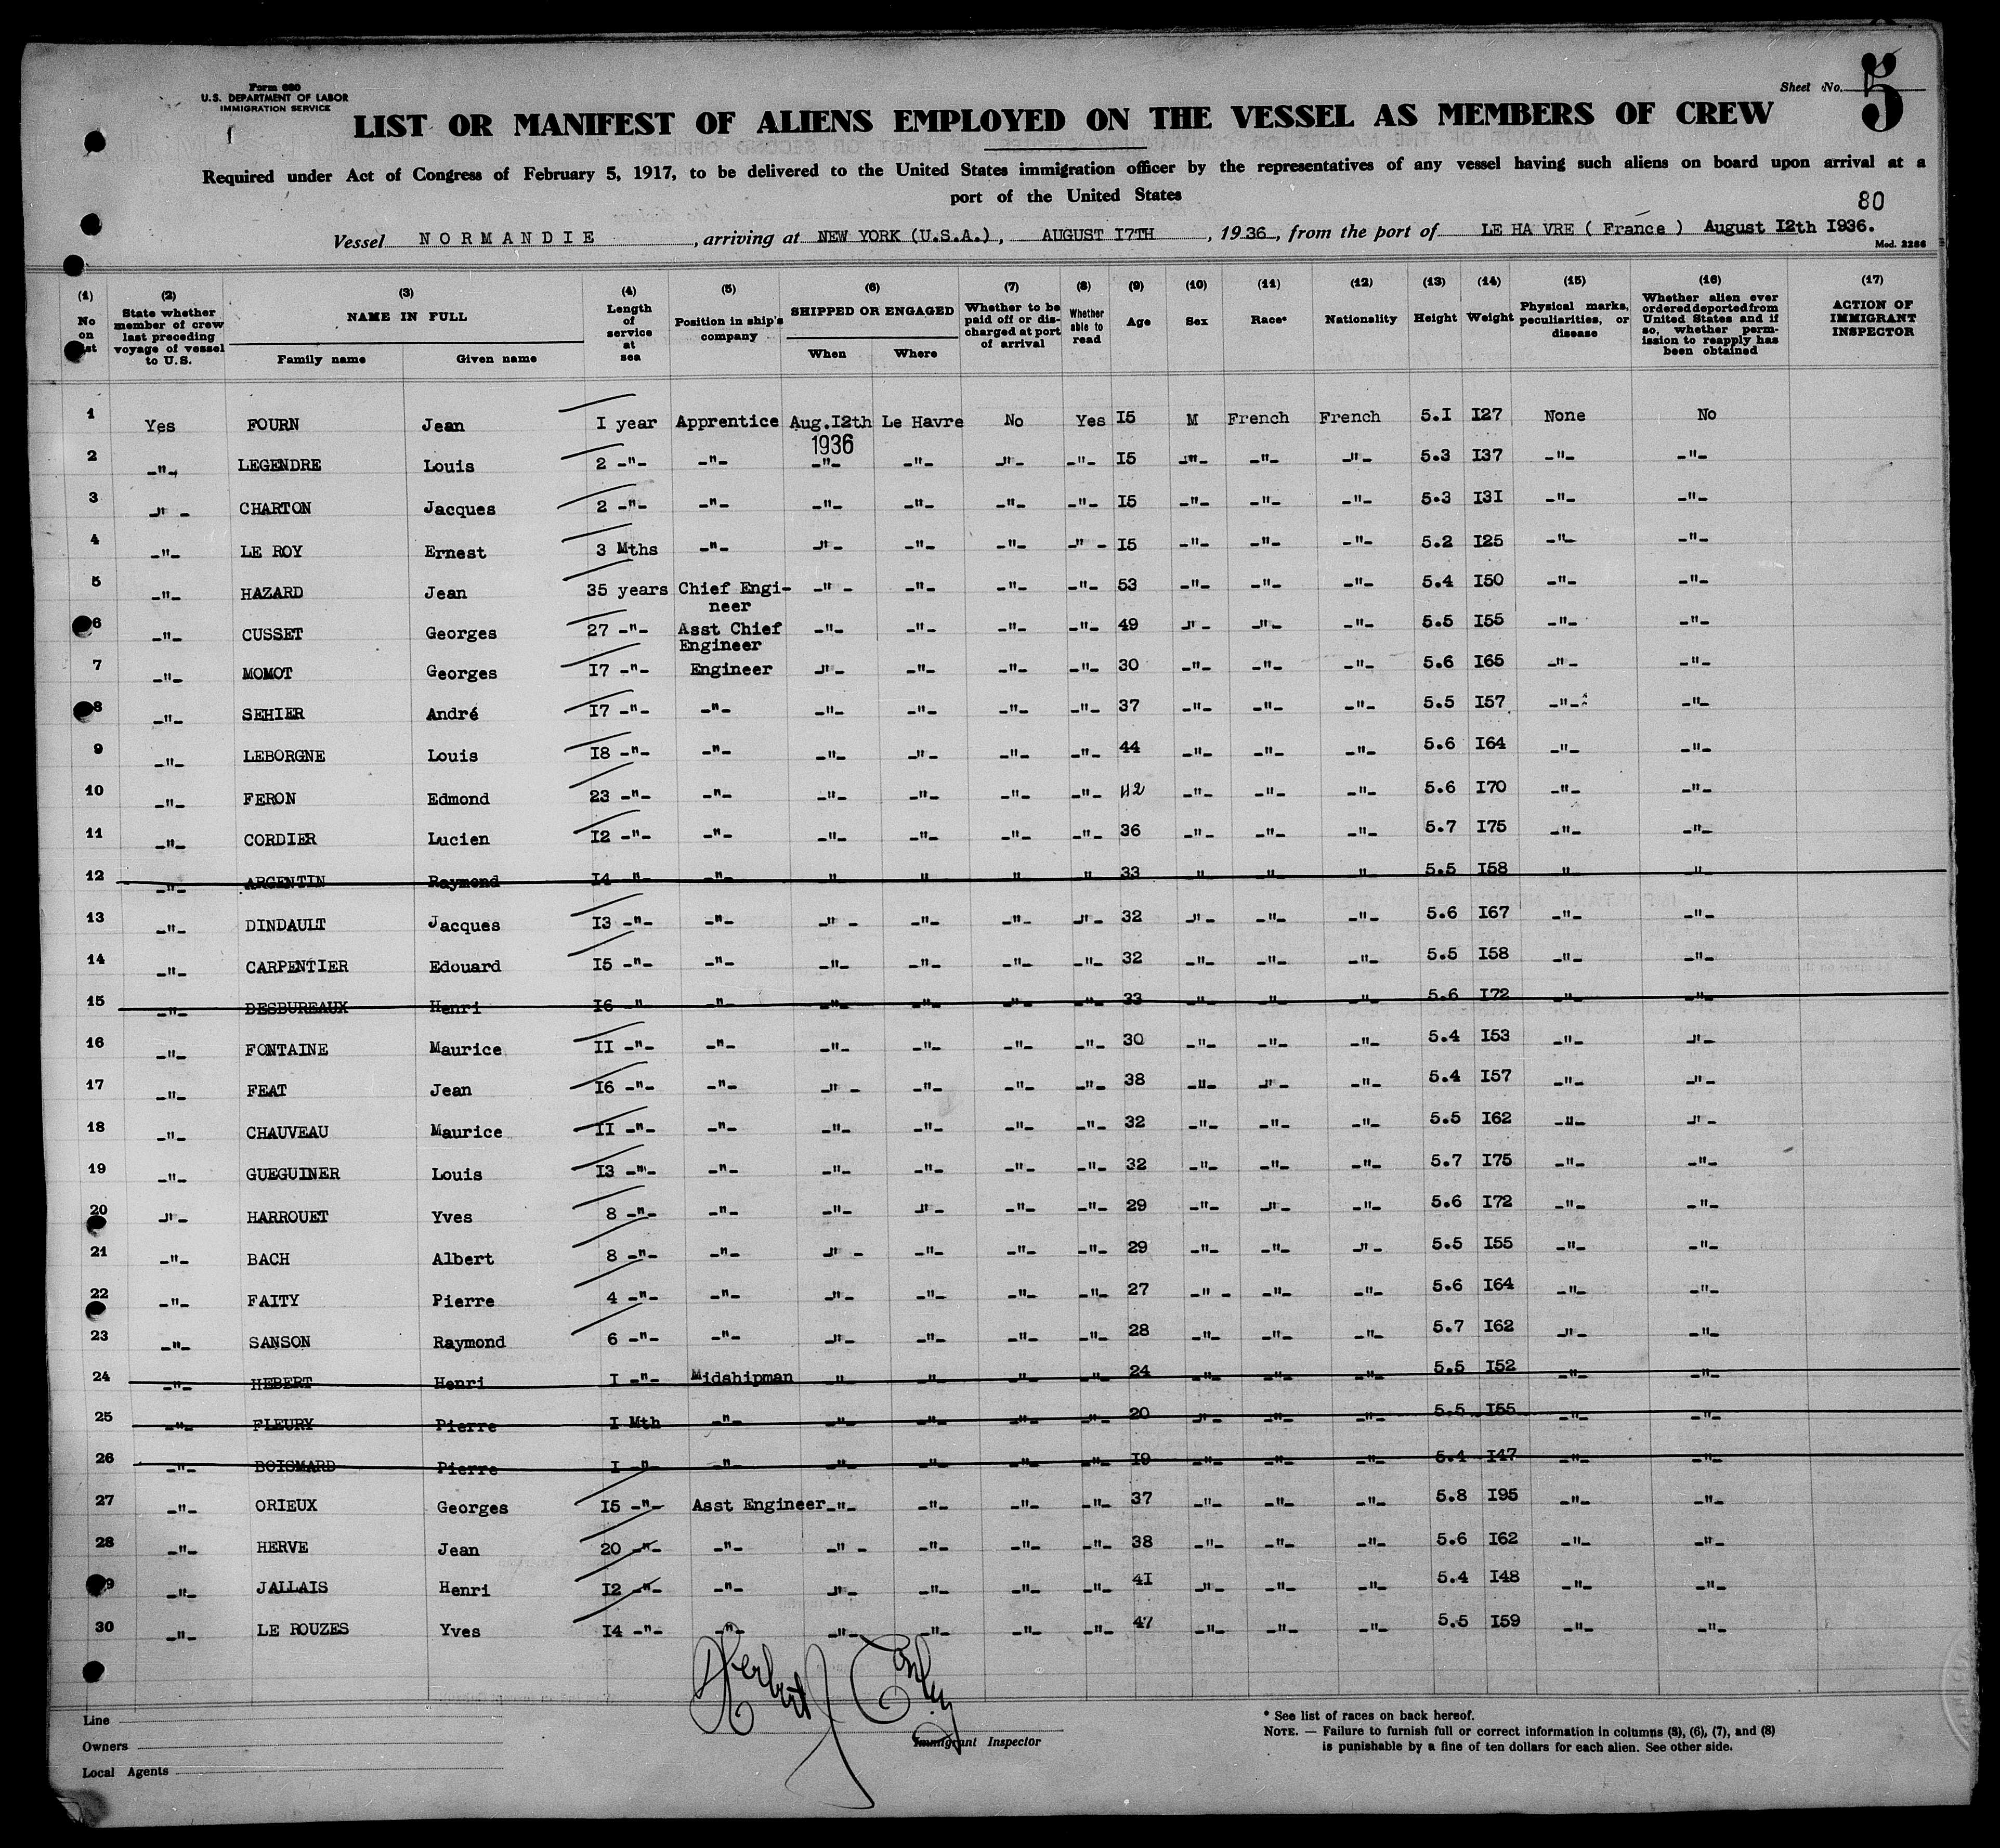 Form 680
U.S. DEPARTMENT OF LABOR
IMMIGRATION SERVICE
Sheet No. 5
LIST OR MANIFEST OF ALIENS EMPLOYED ON THE VESSEL AS MEMBERS OF CREW
Required under Act of Congress of February 5, 1917, to be delivered to the United States immigration officer by the representatives of any vessel having such aliens on board upon arrival at a
port of the United States
80
Vessel NORMANDIE, arriving at NEW YORK (U.S.A.), AUGUST I7TH, 1936, from the port of LE HA VRE ( France ) August I2th I936.
Mod. 2286
(1) No on list (2) State whether member of crew last preceding voyage of vessel to U.S. (3) NAME IN FULL Family name Given name (4) Length of service at sea (5) Position in ship's company (6) SHIPPED OR ENGAGED When Where (7) Whether to be paid off or discharged at port of arrival (8) Whether able to read (9) Age (10) Sex (11) Race* (12) Nationality (13) Height (14) Weight (15) Physical marks, peculiarities, or disease (16) Whether alien ever ordered deported from United States and if so, whether permission to reapply has been obtained (17) ACTION OF IMMIGRANT INSPECTOR
1 Yes FOURN Jean I year Apprentice Aug.I2th 1936 Le Havre No Yes I5 M French French 5.I I27 None No
2 -"- LEGENDRE Louis 2 -"- -"- -"- -"- -"- -"- I5 -"- -"- -"- 5.3 I37 -"- -"-
3 -"- CHARTON Jacques 2 -"- -"- -"- -"- -"- -"- I5 -"- -"- -"- 5.3 I3I -"- -"-
4 -"- LE ROY Ernest 3 Mths -"- -"- -"- -"- -"- I5 -"- -"- -"- 5.2 I25 -"- -"-
5 -"- HAZARD Jean 35 years Chief Engineer -"- -"- -"- -"- 53 -"- -"- -"- 5.4 I50 -"- -"-
6 -"- CUSSET Georges 27 -"- Asst Chief Engineer -"- -"- -"- -"- 49 -"- -"- -"- 5.5 I55 -"- -"-
7 -"- MOMOT Georges I7 -"- Engineer -"- -"- -"- -"- 30 -"- -"- -"- 5.6 I65 -"- -"-
8 -"- SEHIER André I7 -"- -"- -"- -"- -"- -"- 37 -"- -"- -"- 5.5 I57 -"- -"-
9 -"- LEBORGNE Louis I8 -"- -"- -"- -"- -"- -"- 44 -"- -"- -"- 5.6 I64 -"- -"-
10 -"- FERON Edmond 23 -"- -"- -"- -"- -"- -"- 42 -"- -"- -"- 5.6 I70 -"- -"-
11 -"- CORDIER Lucien I2 -"- -"- -"- -"- -"- -"- 36 -"- -"- -"- 5.7 I75 -"- -"-
12 -"- ARGENTIN Raymond I4 -"- -"- -"- -"- -"- -"- 33 -"- -"- -"- 5.5 I58 -"- -"-
13 -"- DINDAULT Jacques I3 -"- -"- -"- -"- -"- -"- 32 -"- -"- -"- 5.6 I67 -"- -"-
14 -"- CARPENTIER Edouard I5 -"- -"- -"- -"- -"- -"- 32 -"- -"- -"- 5.5 I58 -"- -"-
15 -"- DESBUREAUX Henri I6 -"- -"- -"- -"- -"- -"- 33 -"- -"- -"- 5.6 I72 -"- -"-
16 -"- FONTAINE Maurice II -"- -"- -"- -"- -"- -"- 30 -"- -"- -"- 5.4 I53 -"- -"-
17 -"- FEAT Jean I6 -"- -"- -"- -"- -"- -"- 38 -"- -"- -"- 5.4 I57 -"- -"-
18 -"- CHAUVEAU Maurice II -"- -"- -"- -"- -"- -"- 32 -"- -"- -"- 5.5 I62 -"- -"-
19 -"- GUEGUINER Louis I3 -"- -"- -"- -"- -"- -"- 32 -"- -"- -"- 5.7 I75 -"- -"-
20 -"- HARROUET Yves 8 -"- -"- -"- -"- -"- -"- 29 -"- -"- -"- 5.6 I72 -"- -"-
21 -"- BACH Albert 8 -"- -"- -"- -"- -"- -"- 29 -"- -"- -"- 5.5 I55 -"- -"-
22 -"- FAITY Pierre 4 -"- -"- -"- -"- -"- -"- 27 -"- -"- -"- 5.6 I64 -"- -"-
23 -"- SANSON Raymond 6 -"- -"- -"- -"- -"- -"- 28 -"- -"- -"- 5.7 I62 -"- -"-
24 -"- HEBERT Henri I -"- Midshipman -"- -"- -"- -"- 24 -"- -"- -"- 5.5 I52 -"- -"-
25 -"- FLEURY Pierre I Mth -"- -"- -"- -"- -"- 20 -"- -"- -"- 5.5 I55 -"- -"-
26 -"- BOISMARD Pierre I -"- -"- -"- -"- -"- -"- I9 -"- -"- -"- 5.4 I47 -"- -"-
27 -"- ORIEUX Georges I5 -"- Asst Engineer -"- -"- -"- -"- 37 -"- -"- -"- 5.8 I95 -"- -"-
28 -"- HERVE Jean 20 -"- -"- -"- -"- -"- -"- 38 -"- -"- -"- 5.6 I62 -"- -"-
29 -"- JALLAIS Henri I2 -"- -"- -"- -"- -"- -"- 4I -"- -"- -"- 5.4 I48 -"- -"-
30 -"- LE ROUZES Yves I4 -"- -"- -"- -"- -"- -"- 47 -"- -"- -"- 5.5 I59 -"- -"-
Line
Owners
Local Agents
Herbert J
Immigrant Inspector
* See list of races on back hereof.
NOTE. — Failure to furnish full or correct information in columns (3), (6), (7), and (8)
is punishable by a fine of ten dollars for each alien. See other side.